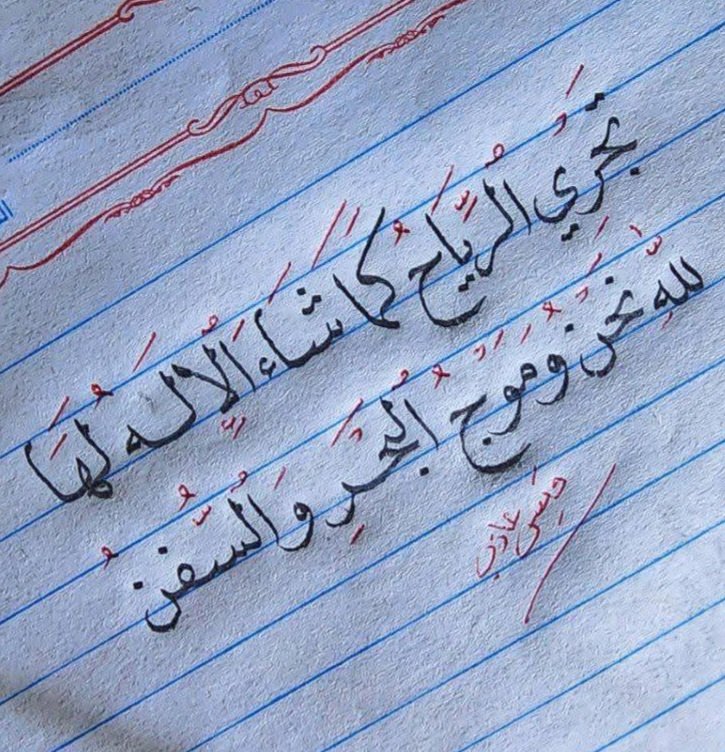 تَجْرِي الرِّيَاحُ كَمَا شَاءَ الْإِلَهُ لَهَا
لِلَّهِ نَحْنُ وَمَوْجُ الْبَحْرِ وَالسُّفُنُ